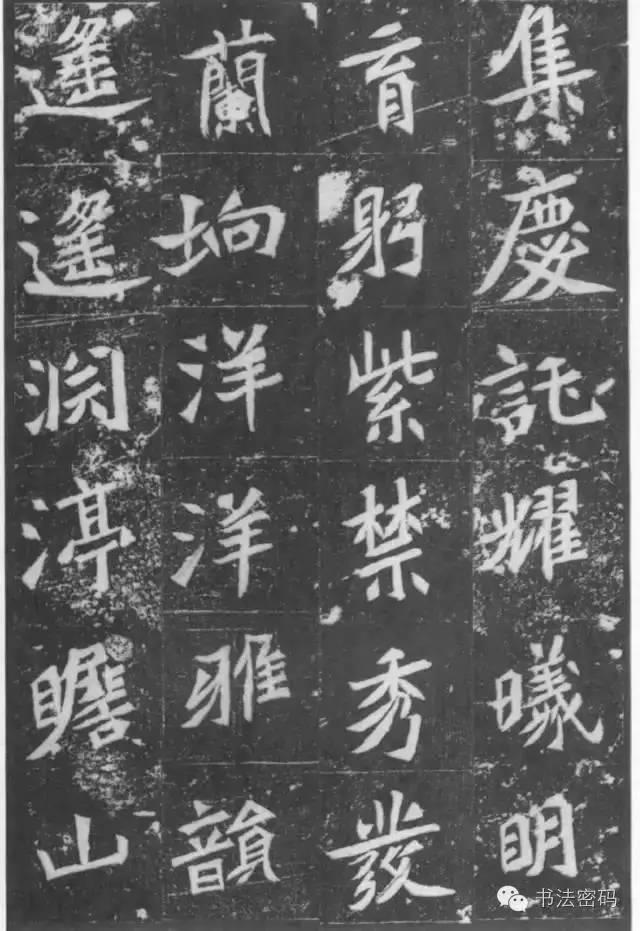 集慶託耀曦明
育躬紫禁秀發
蘭坰洋洋雅韻
遙遙淵渟瞻山
书法密码